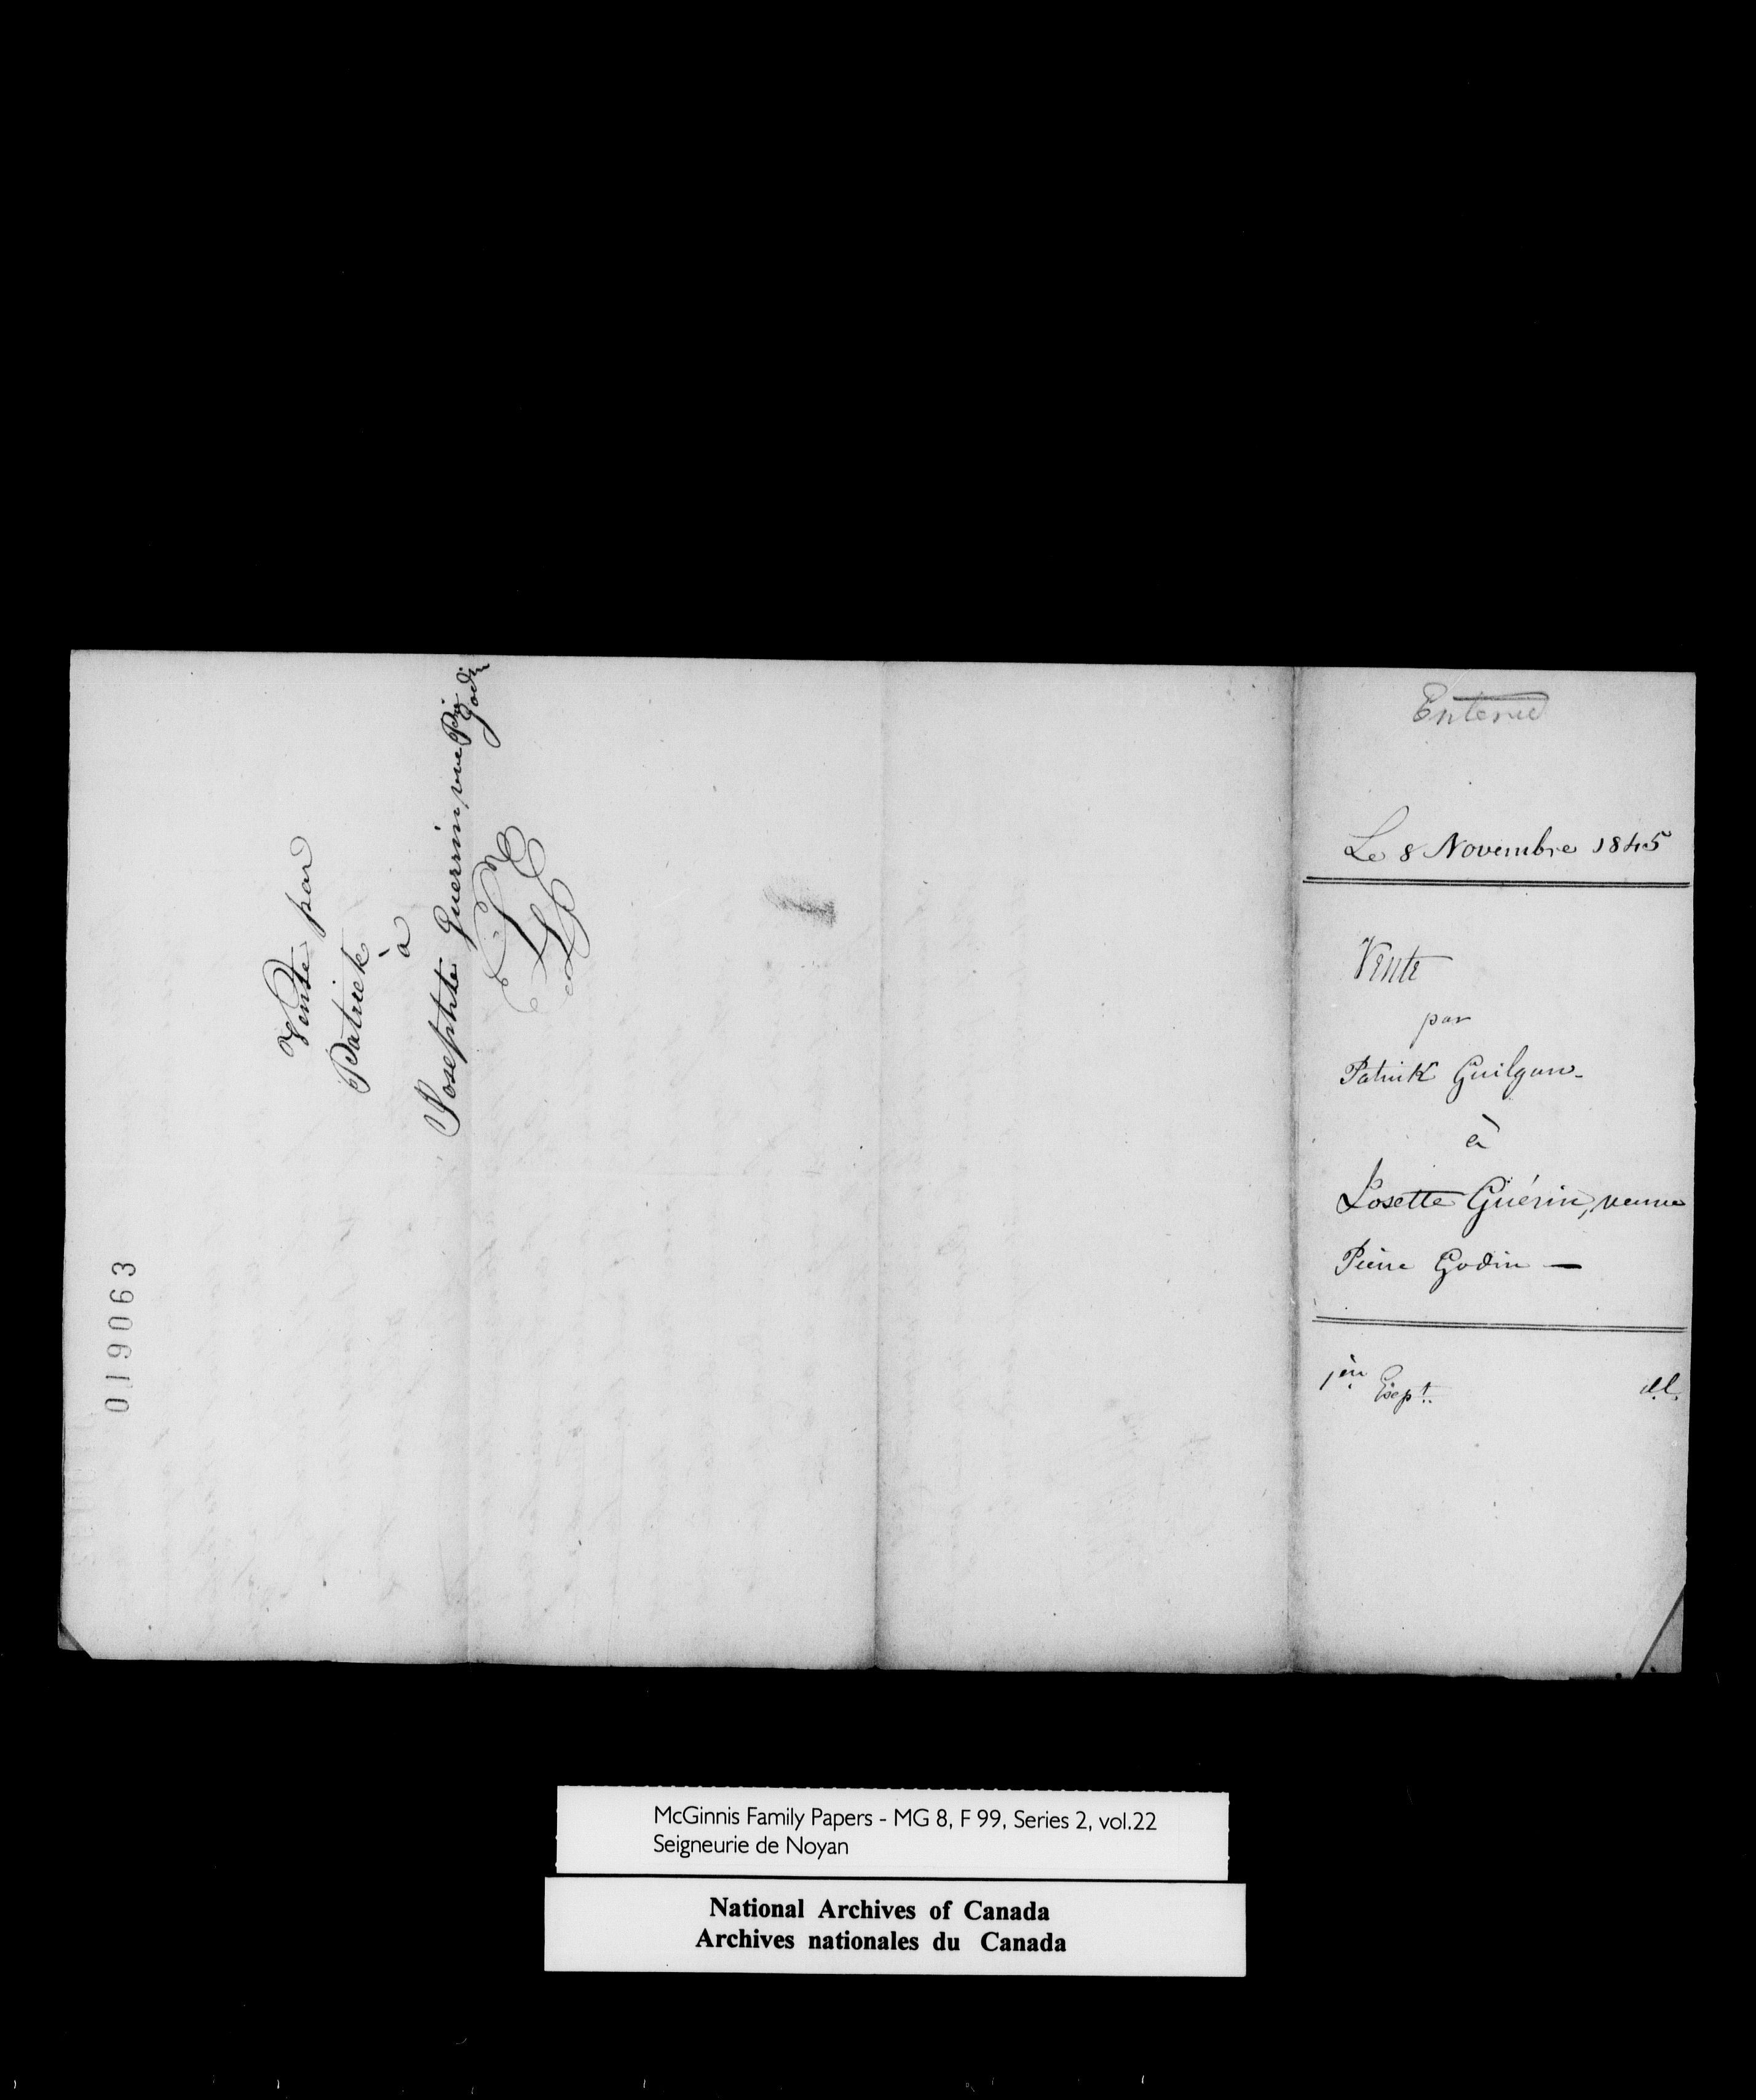 Vente par
Patrick
à
Josephte Guerrin vve Pre
Godin
019063
Entered
Le 8 Novembre 1845
Vente
par
Patrick Guilgan
à
Josette Guérin, veuve
Pierre Godin —
1ère Exept.
McGinnis Family Papers - MG 8, F 99, Series 2, vol.22
Seigneurie de Noyan
National Archives of Canada
Archives nationales du Canada